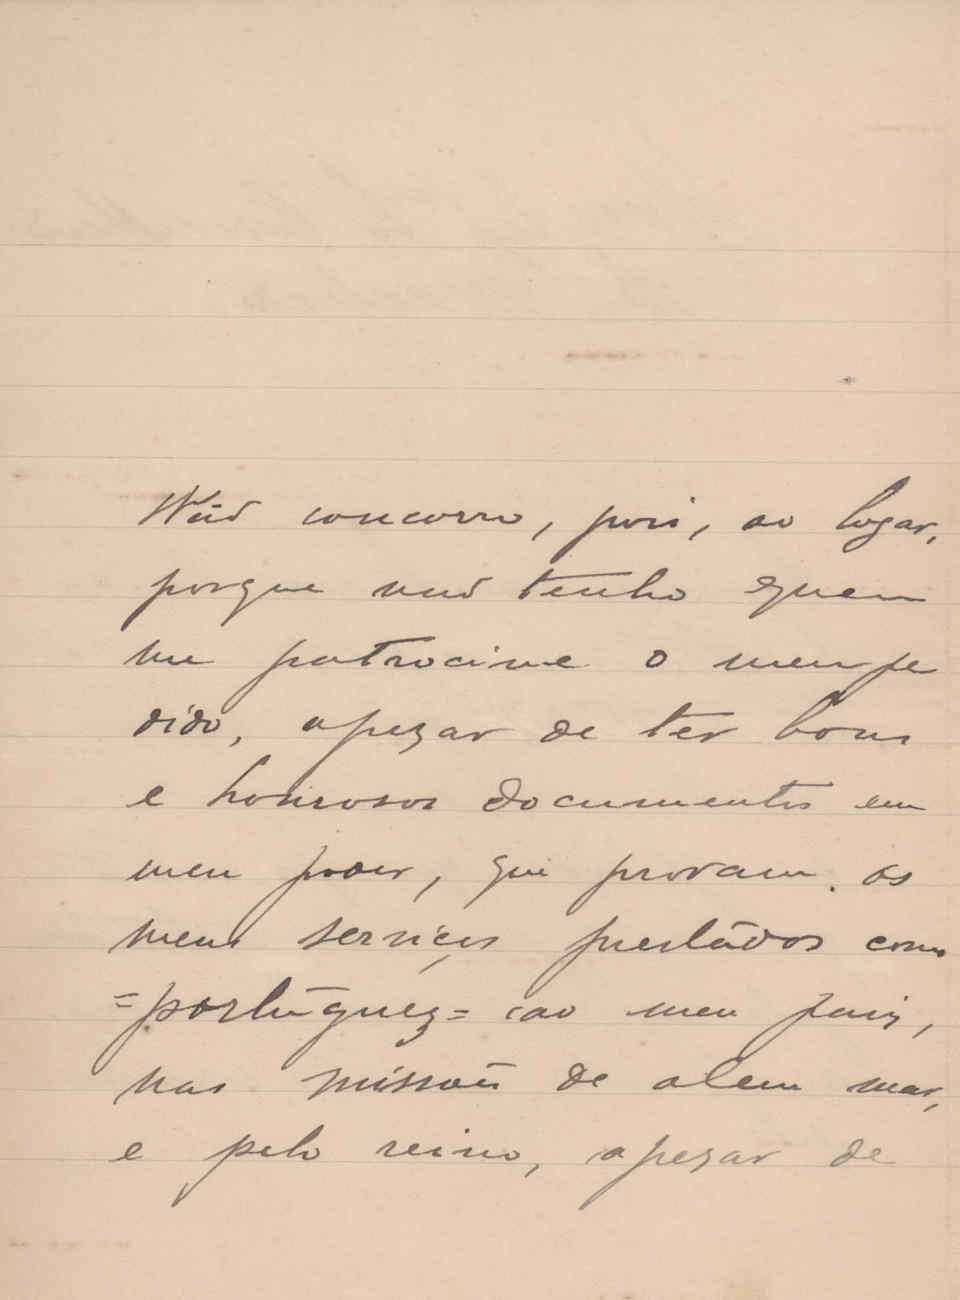 Não concorro, pois, ao logar,
porque não tenho quem
me patrocine o meu pe
dido, apezar de ter bons
e honrosos documentos em
meu poder, que provam os
meus serviços prestados como
=portuguez= ao meu paiz,
nas missões de alem mar,
e pelo reino, apezar de